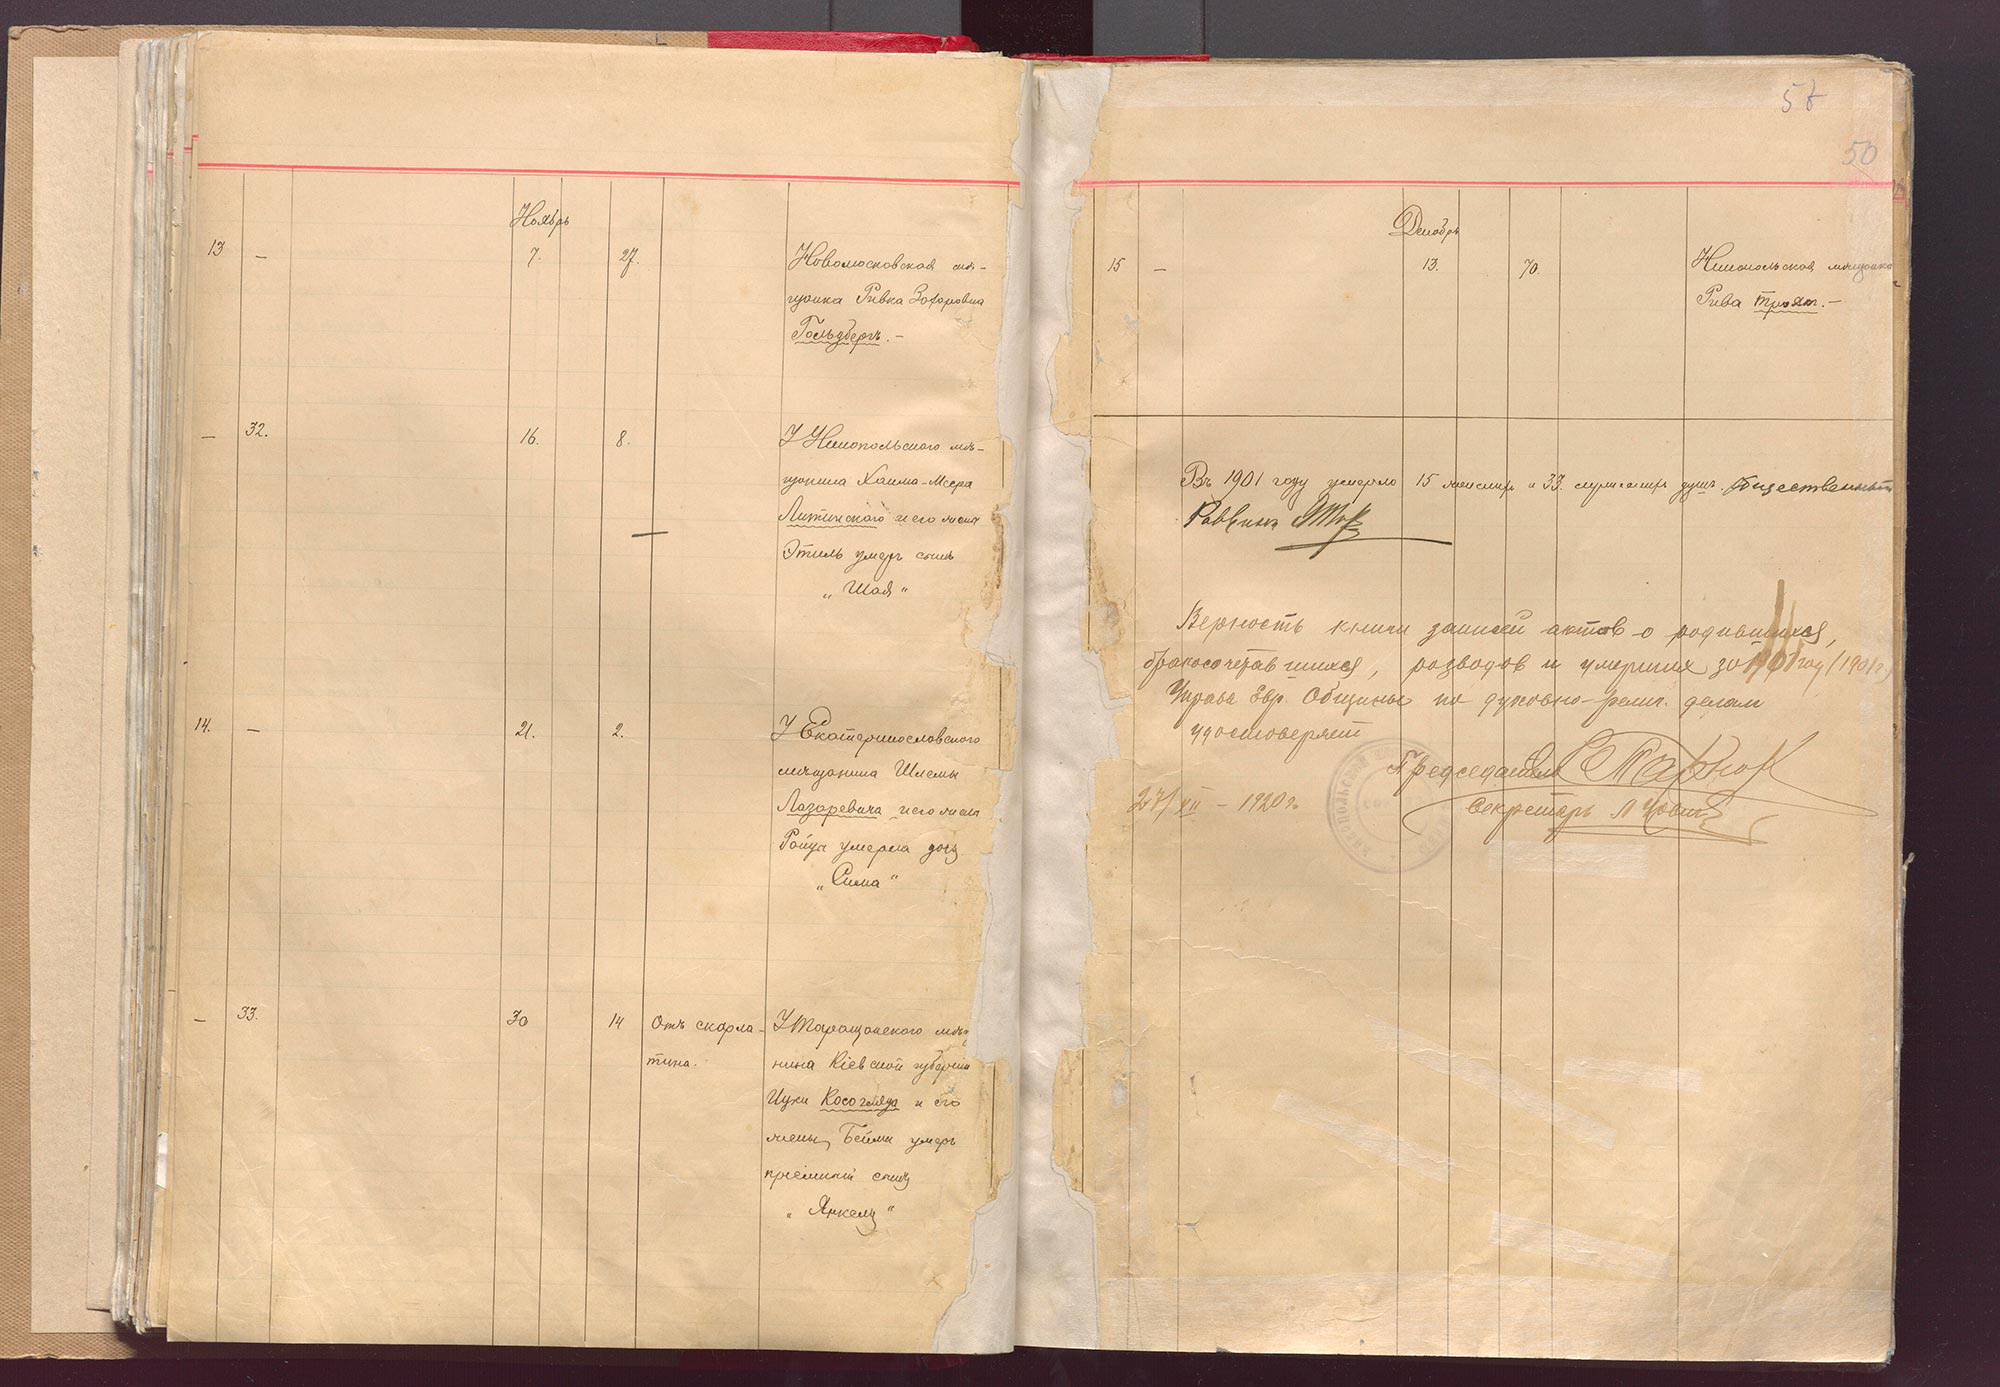 Ноябрь
13 — 7. 27. Новомосковская мѣ-
щанка Ривка Захаровна
Гольдбергъ. —
— 32. 16. 8. У Никопольского мѣ-
щанина Хаима-Меера
Литинского и его жены
Этиль умеръ сынъ
„Шая"
14. — 21. 2. У Екатеринославского
мѣщанина Шлемы
Лазаревича и его жены
умерла дочь
„Сима"
— 33. 30 14 Отъ скарла- У Таращанского мѣщ
тина. нина Кіевской губерніи
Косогляда и его
жены Бейлы умеръ
пріемный сынъ
„Янкель"
57
50
Декабрь
15 — 13. 70. Никопольская мѣщанка
Рива —
Въ 1901 году умерло 15 женских и 33 мужских душъ. Общественный
Раввинъ
Верность книги записей актов о родившихся,
бракосочетавшихся, разводов и умерших за 1901 год (1901 г)
Управа Евр. Общины по духовно-религ. делам
удостоверяет
Председатель
27/XII – 1920 г. Секретарь